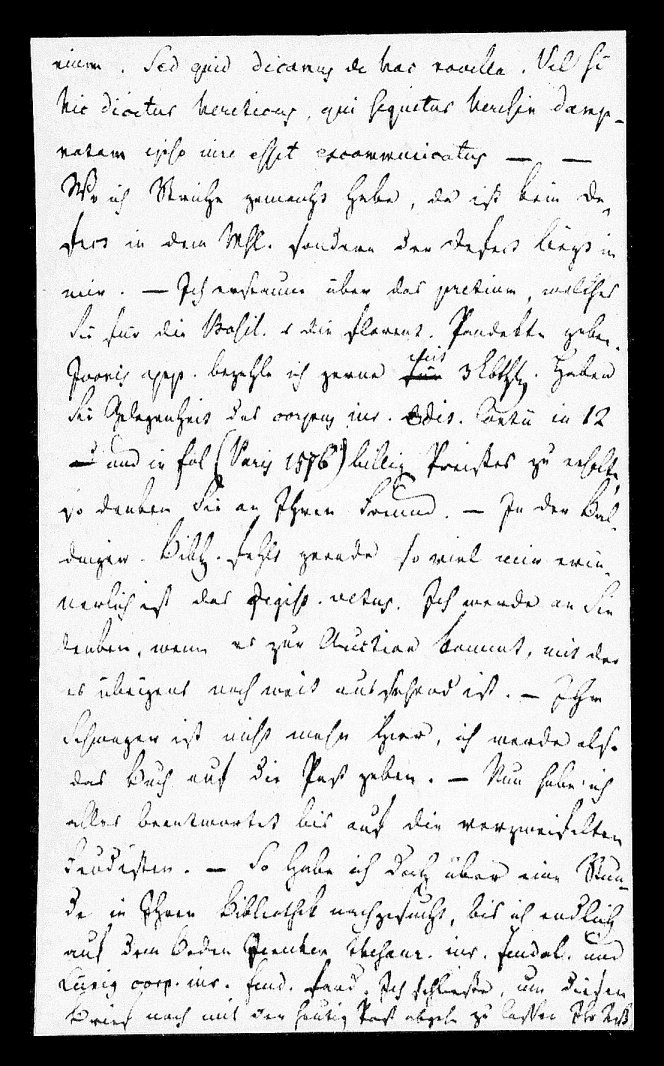 einem. Sed quid dicamus de hac novella. Vel si
hic dicetur hereticus, qui sequetur heresin damp-
natam ipso iure esset excommunicatus — —
Wo ich Striche gemacht habe, da ist kein De-
fect in dem Msst. sondern der Defect liegt in
mir. — Ich erstaune über das pretium, welches
Sie für die Basil. u die florent. Pandekten geben.
app. bezahle ich gerne mit 3 Rthlr. Haben
Sie Gelegenheit das corpus iur. edit. Contii in 12
— und in fol (Paris 1576) billig Preißes zu erhalten,
so denken Sie an Ihren Freund. — In der Bal-
dinger. Bibl. fehlt gerade so viel mir erin-
nerlich ist das Digest. vetus. Ich werde an Sie
denken, wenn es zur Auction kommt, mit der
es übrigens noch weit aussehend ist. — Ihr
Schwager ist nicht mehr hier, ich werde also
das Buch auf die Post geben. — Nun habe ich
alles beantwortet bis auf die verzweifelten
Feudisten. — So habe ich doch über eine Stun-
de in Ihrer Bibliothek nachgesucht, bis ich endlich
auf dem Boden Thesaur. iur. feudal. und
Lünig corp. iur. feud. fand. Ich schließe, um diesen
Brief noch mit der heutig Post abgehn zu lassen Ihr